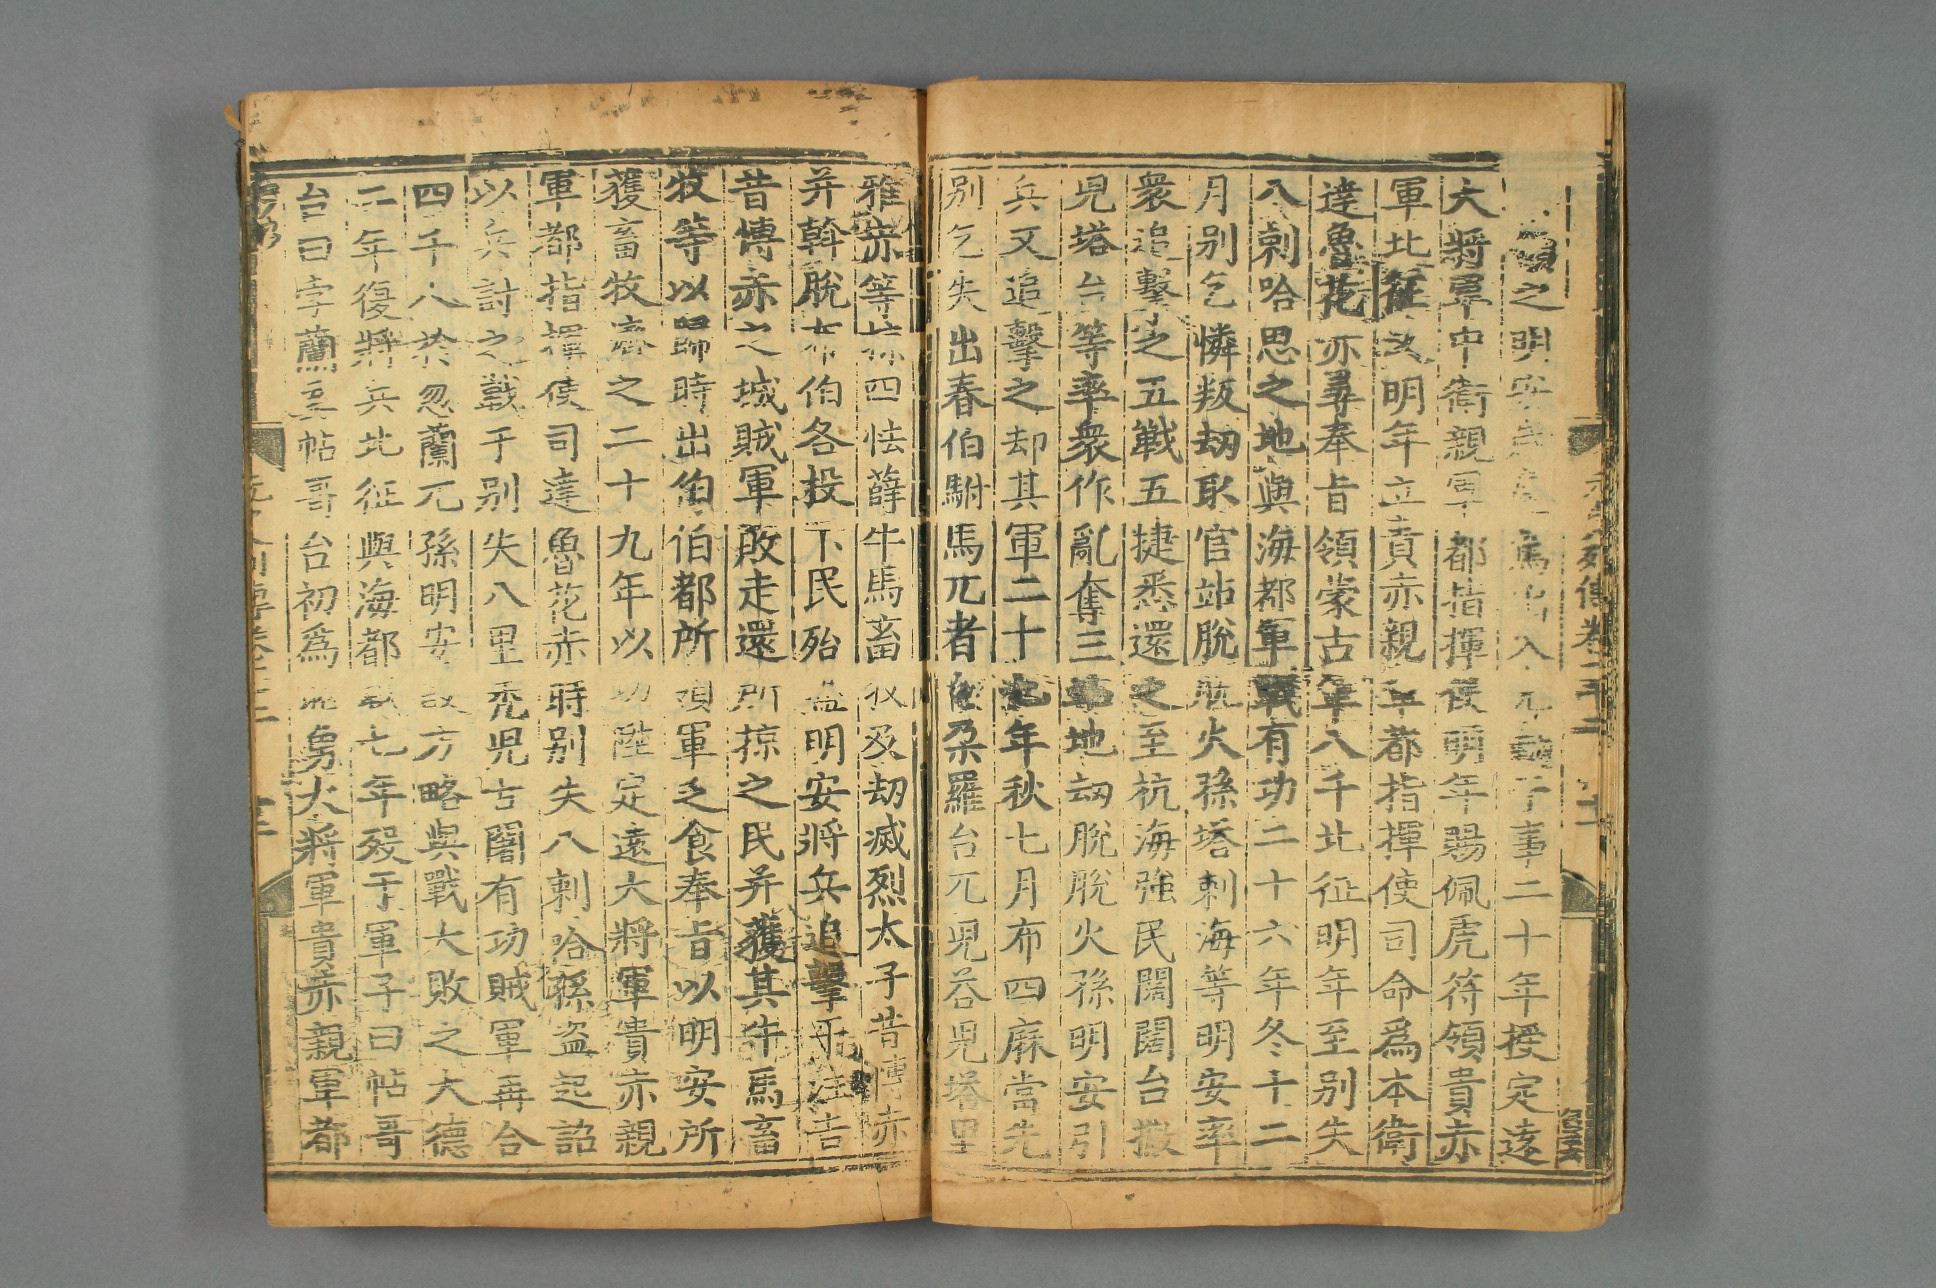 領之明安 為 入 事二十年授定遠
大將軍中衛親軍都指揮使明年賜佩虎符領貴赤
軍北征 明年立貴赤親軍都指揮使司命為本衛
達魯花赤尋奉旨領蒙古軍八千北征明年至別失
八剌哈思之地與海都軍戰有功二十六年冬十二
月別乞憐叛劫取官站脫脫火孫塔剌海等明安率
衆追擊之五戰五捷悉還之至杭海強民闊闊台撒
兒塔台等率衆作亂奪三站地劫脫脫火孫明安引
兵又追擊之却其軍二十七年秋七月布四麻當先
別乞失出春伯駙馬兀者 朶羅台兀兒荅兒塔里
雅赤等 四怯薛牛馬畜牧及劫滅烈太子昔博赤
并斡脫布伯各投下民殆盡明安將兵追擊 汪吉
昔博赤之城賊軍敗走還所掠之民并獲其牛馬畜
牧等以歸時出伯伯都所領軍乏食奉旨以明安所
獲畜牧 之二十九年以功陞定遠大將軍貴赤親
軍都指揮使司達魯花赤時別失八剌哈孫盗起詔
以兵討之戰于別失八里禿兒古闍有功賊軍再合
四千人於忽蘭兀孫明安設方略與戰大敗之大德
二年復將兵北征與海都戰七年殁于軍子曰帖哥
台曰孛蘭奚帖哥台初為昭勇大將軍貴赤親軍都